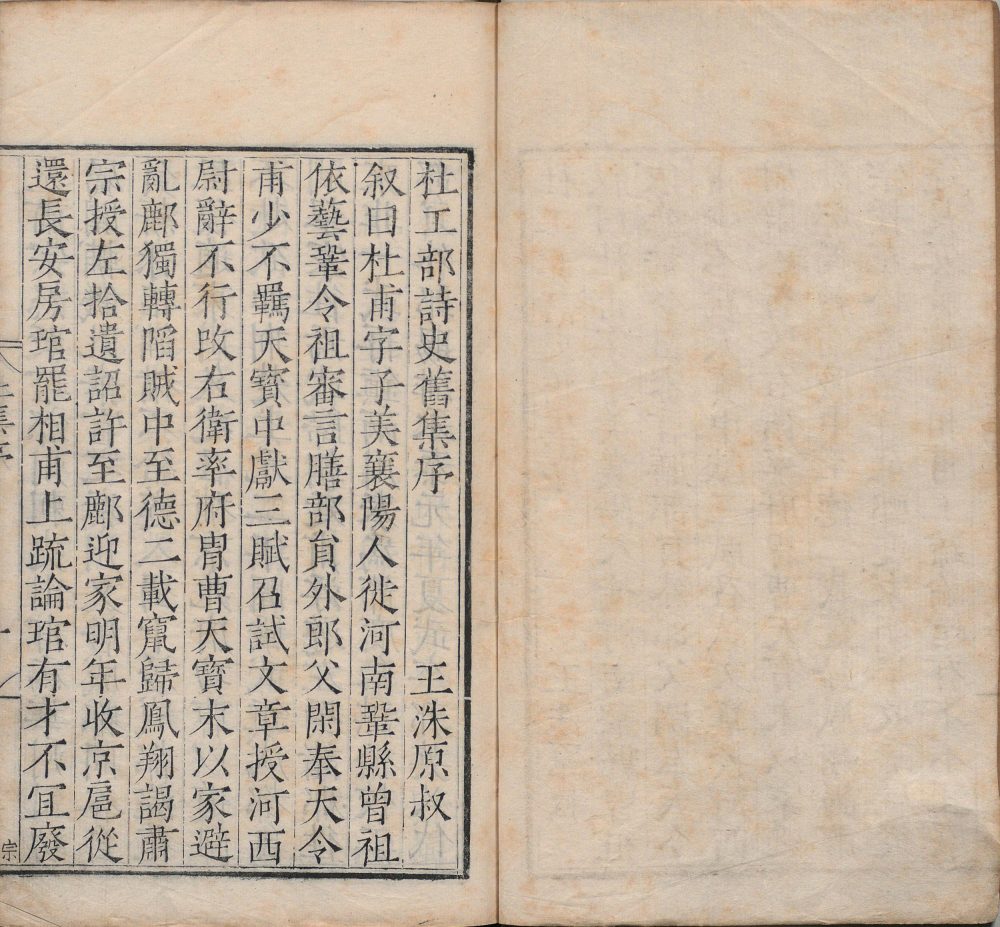 杜工部詩史舊集序 王洙原叔
叙曰杜甫字子美襄陽人徙河南鞏縣曾祖
依藝鞏令祖審言膳部貟外郎父閑奉天令
甫少不羈天寶中獻三賦召試文章授河西
尉辭不行改右衛率府胄曹天寶末以家避
亂鄜獨轉䧟賊中至德二載竄歸鳳翔謁肅
宗授左拾遺詔許至鄜迎家明年收京扈從
還長安房琯罷相甫上䟽論琯有才不宜廢
集序
一
宗